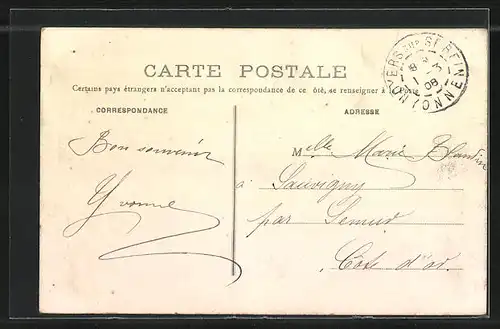 CARTE POSTALE
Certains pays étrangers n'acceptant pas la correspondance de ce ôté, se renseigner à la Poste
CORRESPONDANCE
ADRESSE
Bon souvenir
Yvonne
Melle Marie Blandin
à Sauvigny
par Semur
Côte d'or.
NOYERS SUR SEREINE
8
1 08
(YONNE)